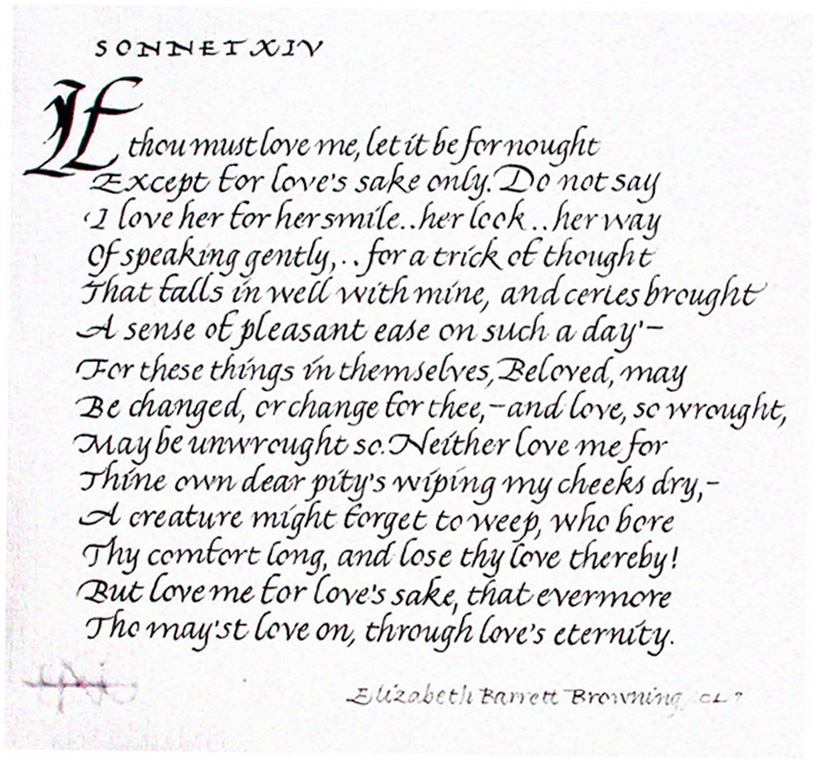 SONNET XIV
If thou must love me, let it be for nought
Except for love's sake only. Do not say
'I love her for her smile..her look..her way
Of speaking gently,..for a trick of thought
That falls in well with mine, and certes brought
A sense of pleasant ease on such a day'–
For these things in themselves, Beloved, may
Be changed, or change for thee,–and love, so wrought,
May be unwrought so. Neither love me for
Thine own dear pity's wiping my cheeks dry,–
A creature might forget to weep, who bore
Thy comfort long, and lose thy love thereby!
But love me for love's sake, that evermore
Tho may'st love on, through love's eternity.
Elizabeth Barrett Browning